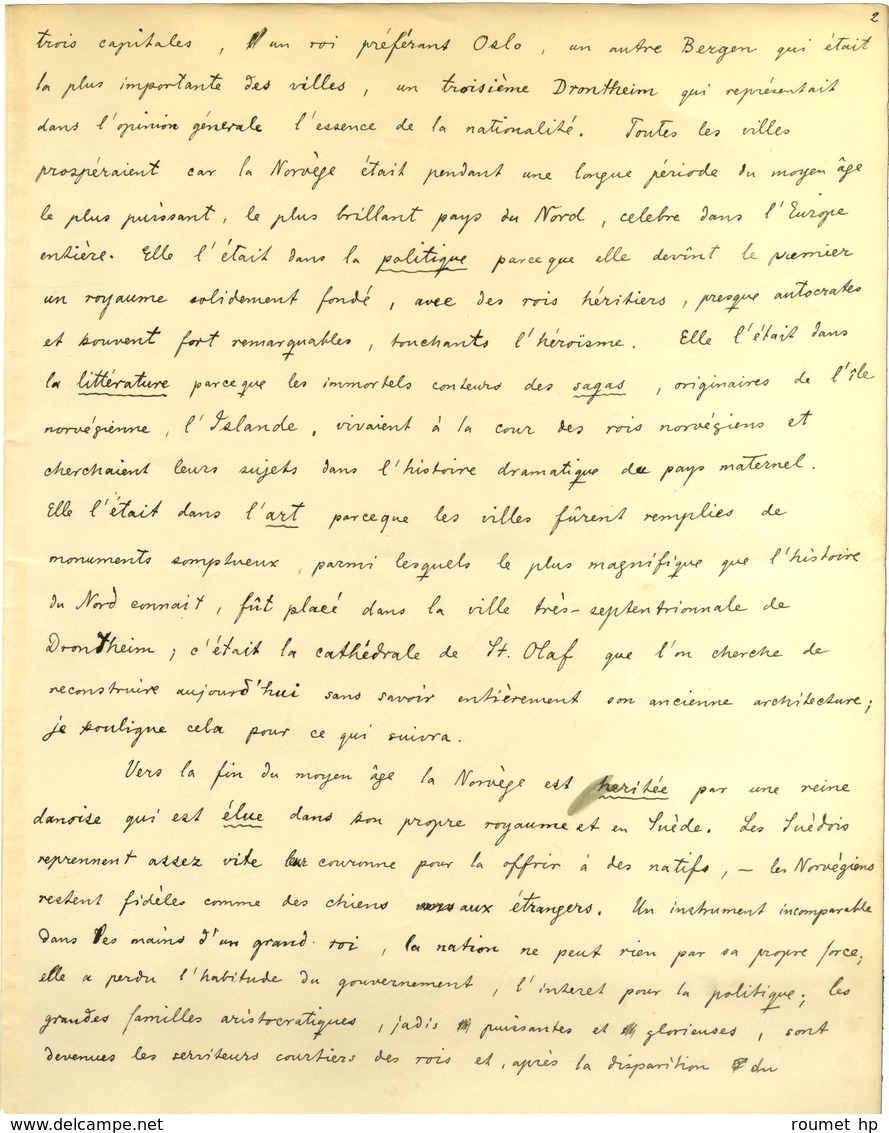 2
trois capitales, un roi préférant Oslo, un autre Bergen qui était
la plus importante des villes, un troisième Drontheim qui représentait
dans l'opinion générale l'essence de la nationalité. Toutes les villes
prospéraient car la Norvège était pendant une longue période du moyen âge
le plus puissant, le plus brillant pays du Nord, celebre dans l'Europe
entière. Elle l'était dans la politique parceque elle devînt le premier
un royaume solidement fondé, avec des rois héritiers, presque autocrates
et souvent fort remarquables, touchants l'héroïsme. Elle l'était dans
la littérature parceque les immortels conteurs des sagas, originaires de l'île
norvégienne, l'Islande, vivaient à la cour des rois norvégiens et
cherchaient leurs sujets dans l'histoire dramatique du pays maternel.
Elle l'était dans l'art parceque les villes fûrent remplies de
monuments somptueux, parmi lesquels le plus magnifique que l'histoire
du Nord connait, fût placé dans la ville très-septentrionnale de
Drontheim; c'était la cathédrale de St. Olaf que l'on cherche de
reconstruire aujourd'hui sans savoir entièrement son ancienne architecture;
je souligne cela pour ce qui suivra.
Vers la fin du moyen âge la Norvège est heritée par une reine
danoise qui est élue dans son propre royaume et en Suède. Les Suédois
reprennent assez vite leur couronne pour la offrir à des natifs, – les Norvégiens
restent fidèles comme des chiens aux étrangers. Un instrument incomparable
dans les mains d'un grand roi, la nation ne peut rien par sa propre force;
elle a perdu l'habitude du gouvernement, l'interet pour la politique; les
grandes familles aristocratiques, jadis puissantes et glorieuses, sont
devenues les serviteurs courtiers des rois et, après la disparition du
roumet hp